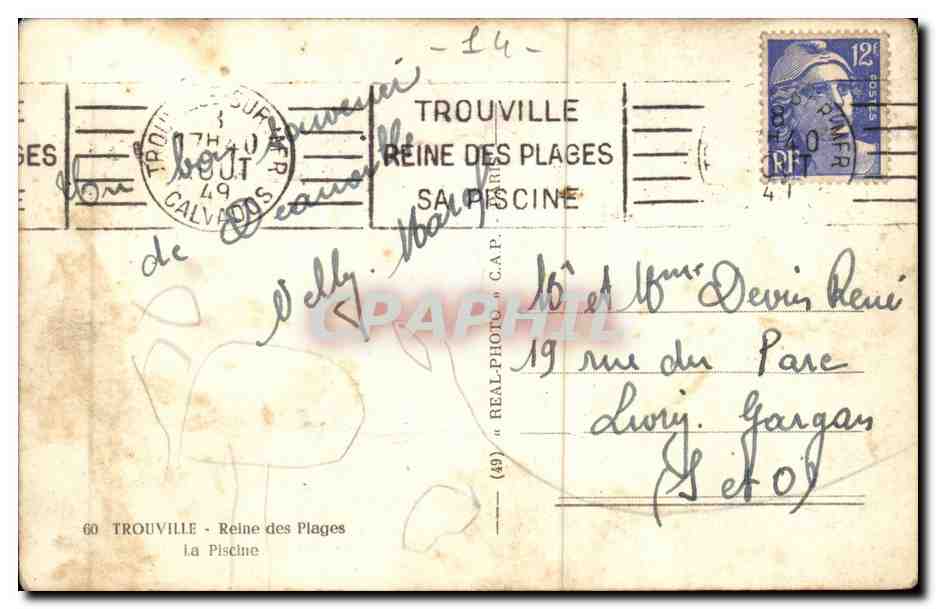 - 14 -
TROUVILLE
REINE DES PLAGES
SA PISCINE
GES
E
TROUVILLE SUR MER
8
17H40
AOUT
49
CALVADOS
12F
POSTES
RF
R MER
8
40
OUT
Un bon souvenir
de Deauville
Nelly. Margt
Mr et Mme Devin René
19 rue du Parc
Livry. Gargan
(S et O)
(49) « REAL-PHOTO » C.A.P. PARIS
CPAPHIL
60 TROUVILLE - Reine des Plages
La Piscine